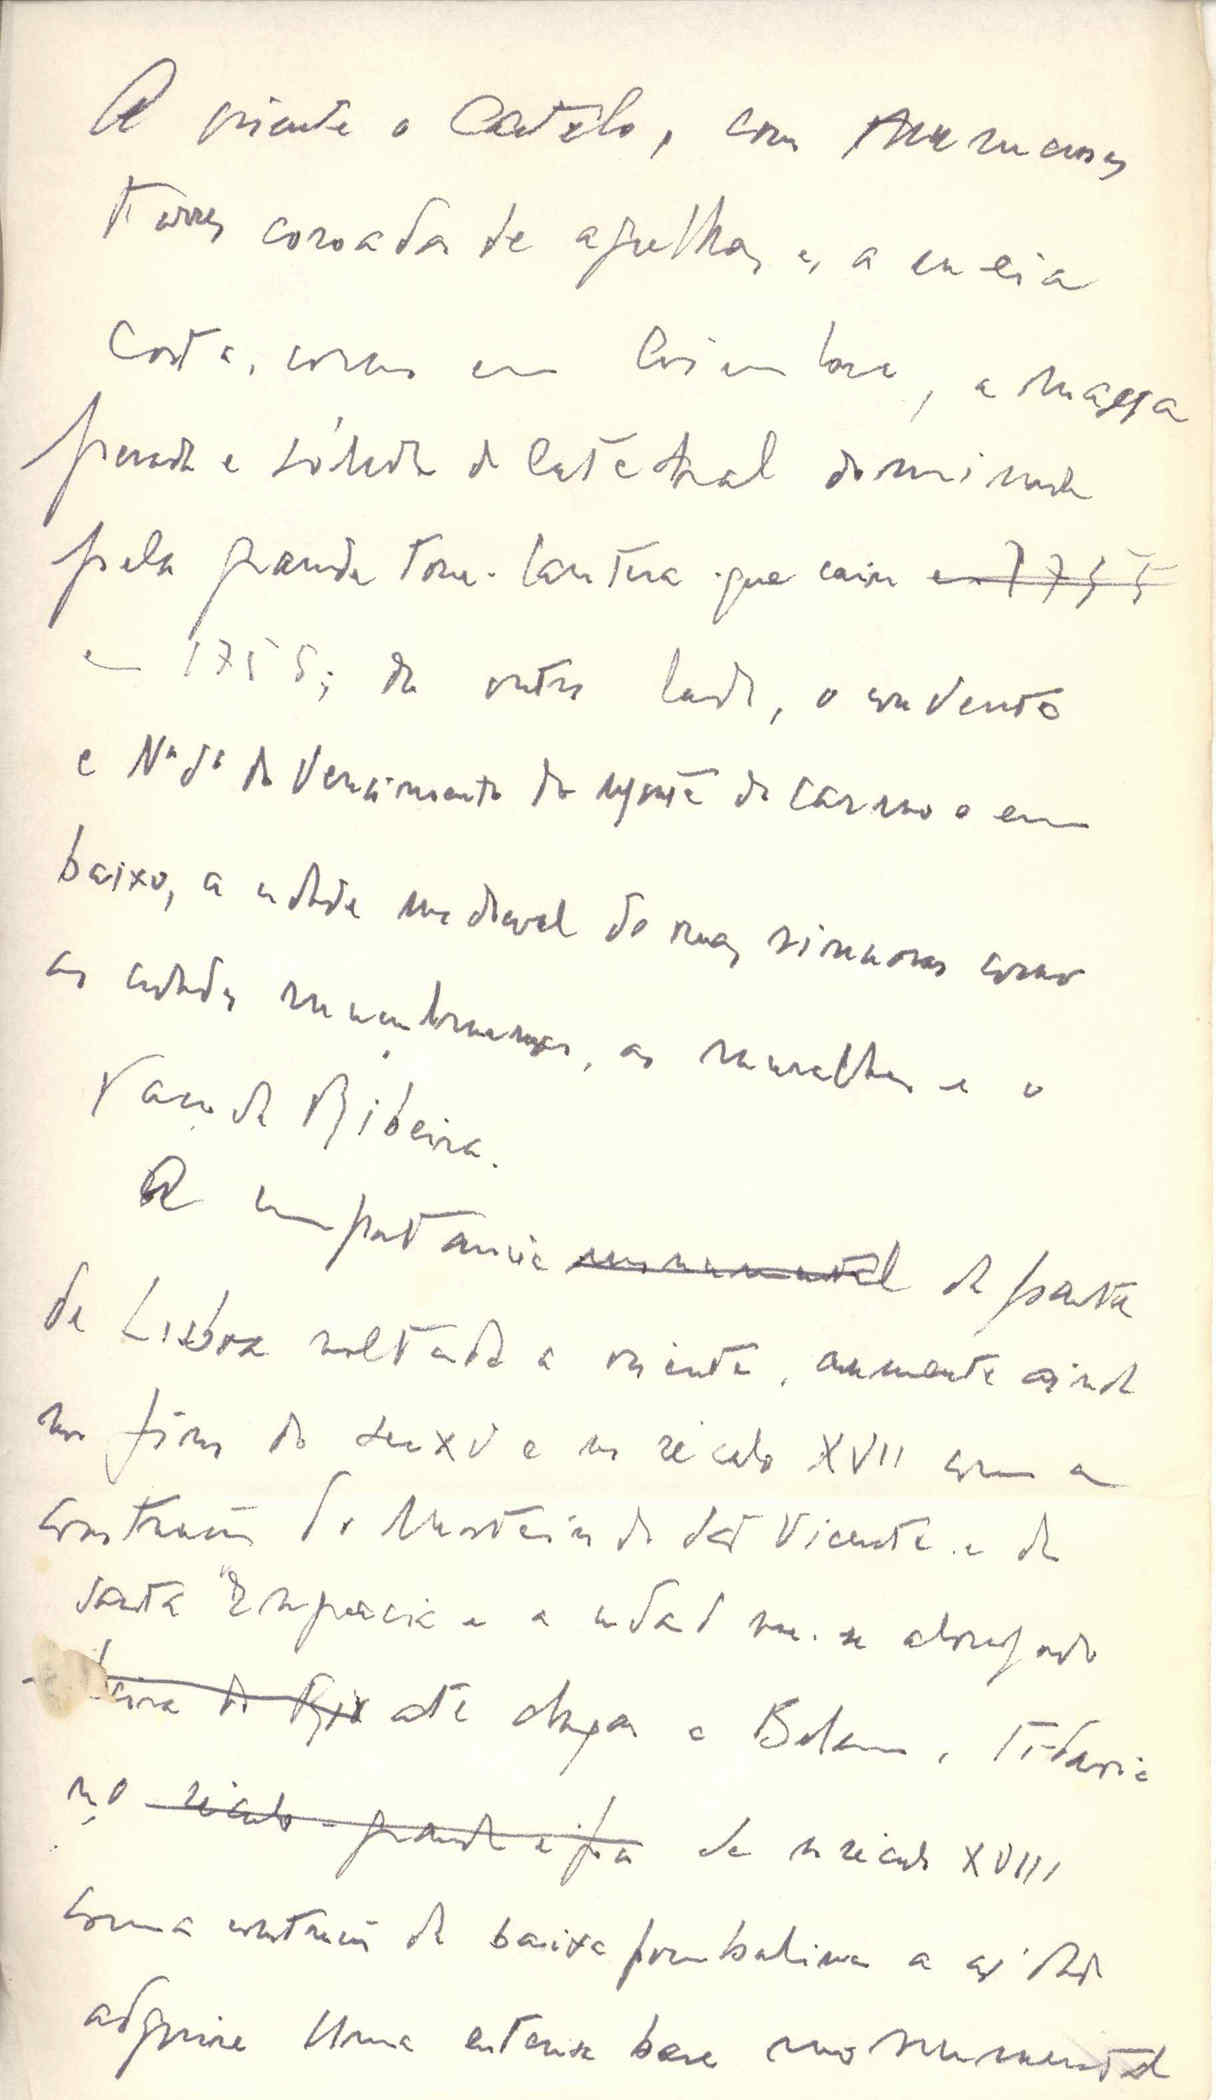 A oriente o Castelo, com numerosas
torres coroadas de agulhas e, a meia
Costa, como em Coimbra, a massa
pesada e sólida da Catedral dominada
pela grande torre-lanterna que caiu em 1755
em 1755; do outro lado, o convento
e Nª Sª do Vencimento do monte do Carmo e em
baixo, a cidade medieval de ruas sinuosas como
as cidades, as muralhas e o
Paço da Ribeira.
A importancia monumental da parte
de Lisboa voltada a oriente, aumenta ainda
no fim do sec XV e no século XVII com a
construção do Mosteiro de São Vicente e de
Santa Engrácia e a cidade vai-se alongando
beira do Rio até chegar a Belem, Todavia
no século de no século XVIII
com a construção da baixa pombalina a cidade
adquire uma extensa base monumental